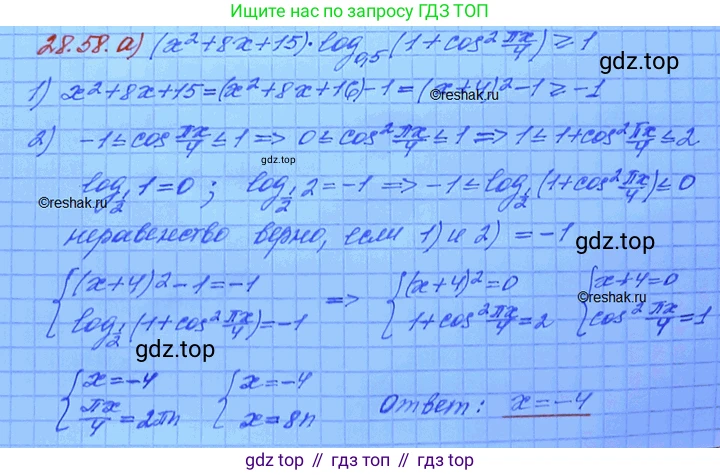 Ищите нас по запросу ГДЗ ТОП
28.58. а) (x²+8x+15)·log₀,₅(1+cos² πx/4) ≥ 1
gdz.top
1) x²+8x+15=(x²+8x+16)-1=(x+4)²-1 ≥ -1
©reshak.ru
2) -1 ≤ cos πx/4 ≤ 1 => 0 ≤ cos² πx/4 ≤ 1 => 1 ≤ 1+cos² πx/4 ≤ 2
gdz.top
log_½ 1=0 ; log_½ 2=-1 => -1 ≤ log_½ (1+cos² πx/4) ≤ 0
©reshak.ru
неравенство верно, если 1) и 2) = -1
gdz.top
{(x+4)²-1=-1 => {(x+4)²=0 {x+4=0
©reshak.ru
{log_½ (1+cos² πx/4)=-1 {1+cos² πx/4=2 {cos² πx/4=1
gdz.top
{x=-4 {x=-4 Ответ: x=-4
{πx/4=2πn {x=8n
gdz.top // gdz.top // gdz.top